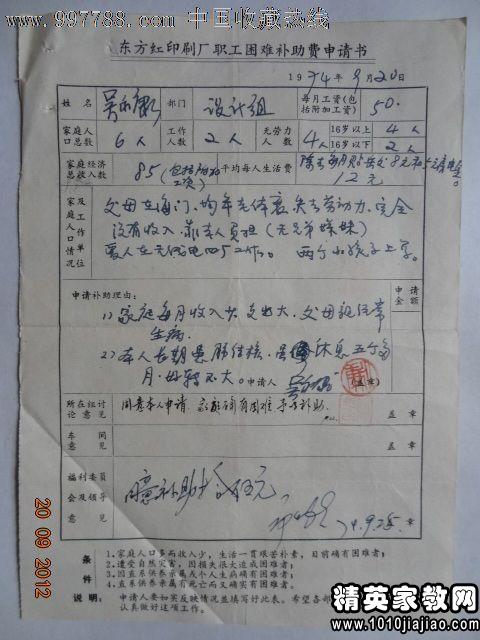 www.997788.com 中国收藏热线
东方红印刷厂职工困难补助费申请书
1974年9月20日
姓名 部门 设计组 每月工资(包括附加工资) 50.
家庭人口总数 6人 工作人数 2人 无劳力人数 4人 16岁以上 4人 16岁以下 2人
家庭经济总收入数 85(包括附加工资) 平均每人生活费 12元
家庭人口情况及工作单位
父母在海门、均年老体衰、失去劳动力、完全
没有收入、靠本人负担(无兄弟妹妹)
爱人在无线电四厂工作。 两个小孩子上学。
申请补助理由: 申请金额
1)家庭每月收入少、支出大、父母经常
生病.
2)本人长期患肺结核、休息五个多
月.好转不大。申请人 (盖章)
所在组讨论意见 同意本人申请、家庭确有困难 予以补助. 盖章
车间意见 盖章
福利委员会及领导意见
同意补助 伍元, 74.9.25 章
条件
1、家庭人口多而收入少,生活一贯艰苦朴素,目前确有困难者;
2、遭受自然灾害,因损失很大造成困难者;
3、因直系供养亲属或个人生病确有困难者;
4、直系供养亲属有死亡而又确实有困难者。
说明: 申请人要如实反映情况并填写好此表。希望各部
认真做好这项工作。
20 09 2012
精英家教网
www.1010jiajiao.com